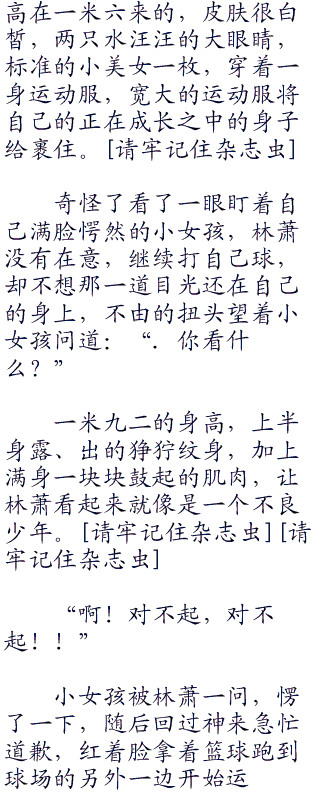 高在一米六来的，皮肤很白
皙，两只水汪汪的大眼睛，
标准的小美女一枚，穿着一
身运动服，宽大的运动服将
自己的正在成长之中的身子
给裹住。[请牢记住杂志虫]
奇怪了看了一眼盯着自
己满脸愕然的小女孩，林萧
没有在意，继续打自己球，
却不想那一道目光还在自己
的身上，不由的扭头望着小
女孩问道：“．你看什
么？”
一米九二的身高，上半
身露、出的狰狞纹身，加上
满身一块块鼓起的肌肉，让
林萧看起来就像是一个不良
少年。[请牢记住杂志虫][请
牢记住杂志虫]
“啊！对不起，对不
起！！”
小女孩被林萧一问，愣
了一下，随后回过神来急忙
道歉，红着脸拿着篮球跑到
球场的另外一边开始运